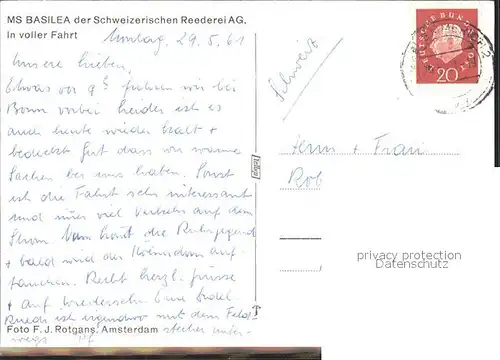 MS BASILEA der Schweizerischen Reederei AG.
In voller Fahrt
Montag, 29.5.61
Unsere Lieben,
Etwas vor 9h fuhren wir bei
Bonn vorbei leider ist es
auch heute wieder kalt +
bedeckt gut dass wir warme
Sachen bei uns haben. Sonst
ist die Fahrt sehr interessant
und immer viel Verkehr auf dem
Strom. Nun kommt die Ruhrgegend
+ bald wird der Kölnerdom auf-
tauchen. Recht herzl. Grüsse
+ auf Wiedersehn Eure
Ruedi ist irgendwo mit dem Feld-
stecher unter-
wegs
Foto F. J. Rotgans, Amsterdam
Schweiz
DEUTSCHE BUNDESPOST
20
Herrn + Frau
Rob
privacy protection
Datenschutz